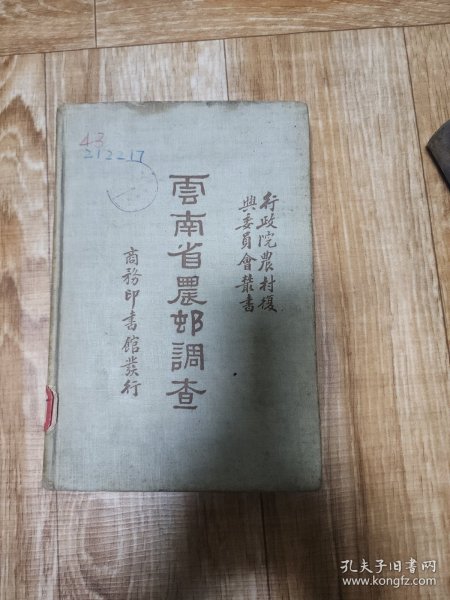 行政院農村復
興委員會叢書
雲南省農邨調查
商務印書館發行
43
212217
孔夫子旧书网
www.kongfz.com